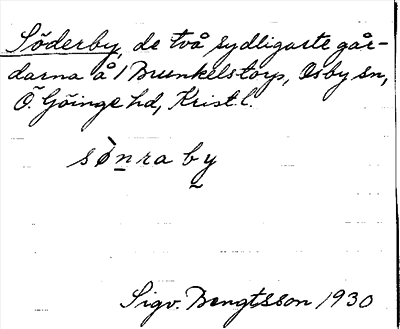 Söderby, de två sydligaste går-
darna å 1 Brunkelstorp, Osby sn,
Ö. Göinge hd, Krist. l.
sò̱nraby
Sigv. Bengtsson 1930